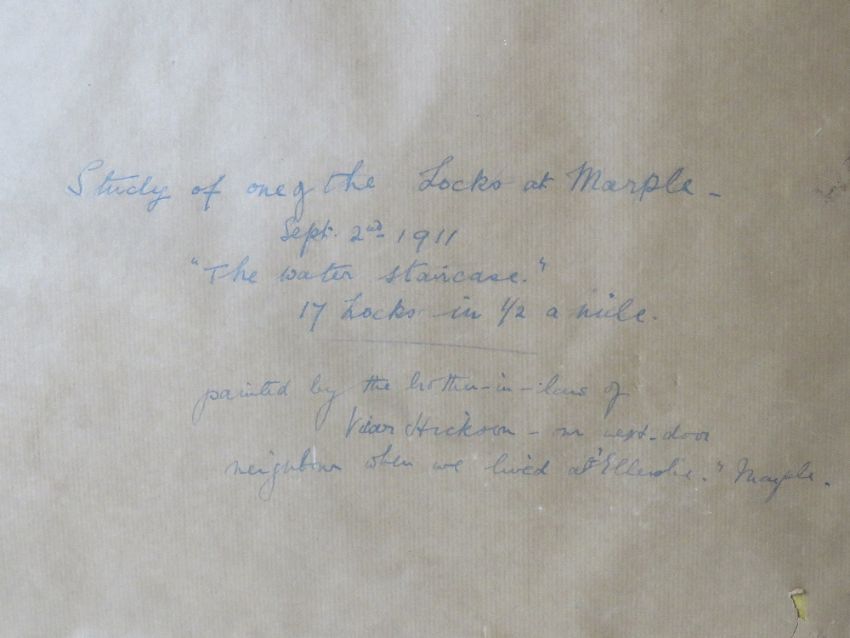 Study of one of the Locks at Marple -
Sept. 2nd 1911
"The water staircase."
17 Locks in 1/2 a mile.
painted by the brother-in-law of
Hickson - our next-door
neighbour when we lived at " Marple.